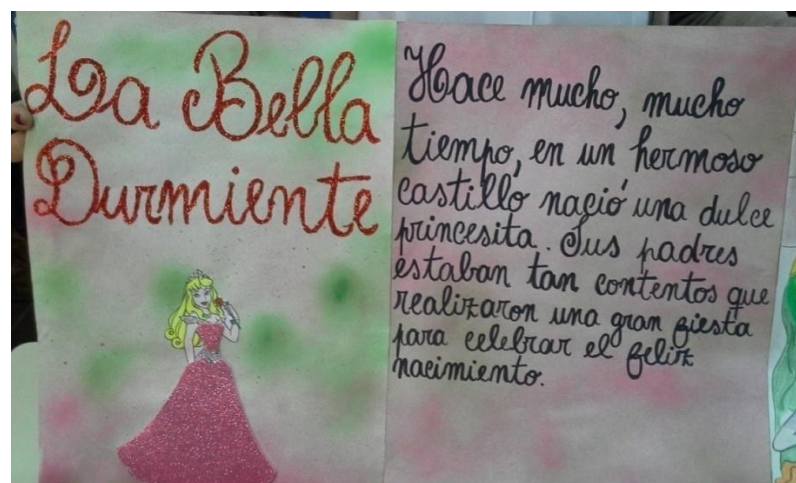 La Bella
Durmiente
Hace mucho, mucho
tiempo, en un hermoso
castillo nació una dulce
princesita. Sus padres
estaban tan contentos que
realizaron una gran fiesta
para celebrar el feliz
nacimiento.